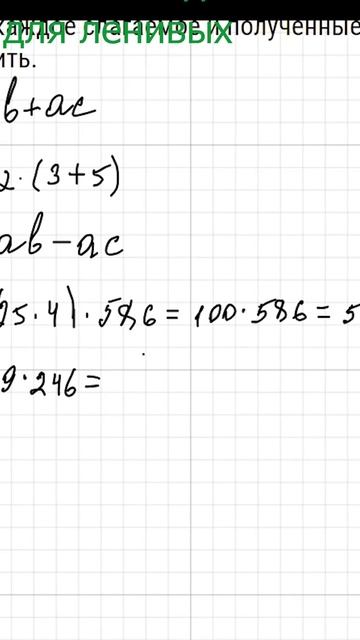 для ленивых
каждое слагаемое и полученные
ить.
b+ac
2·(3+5)
ab-ac
25·4)·586=100·586=5
9·246=